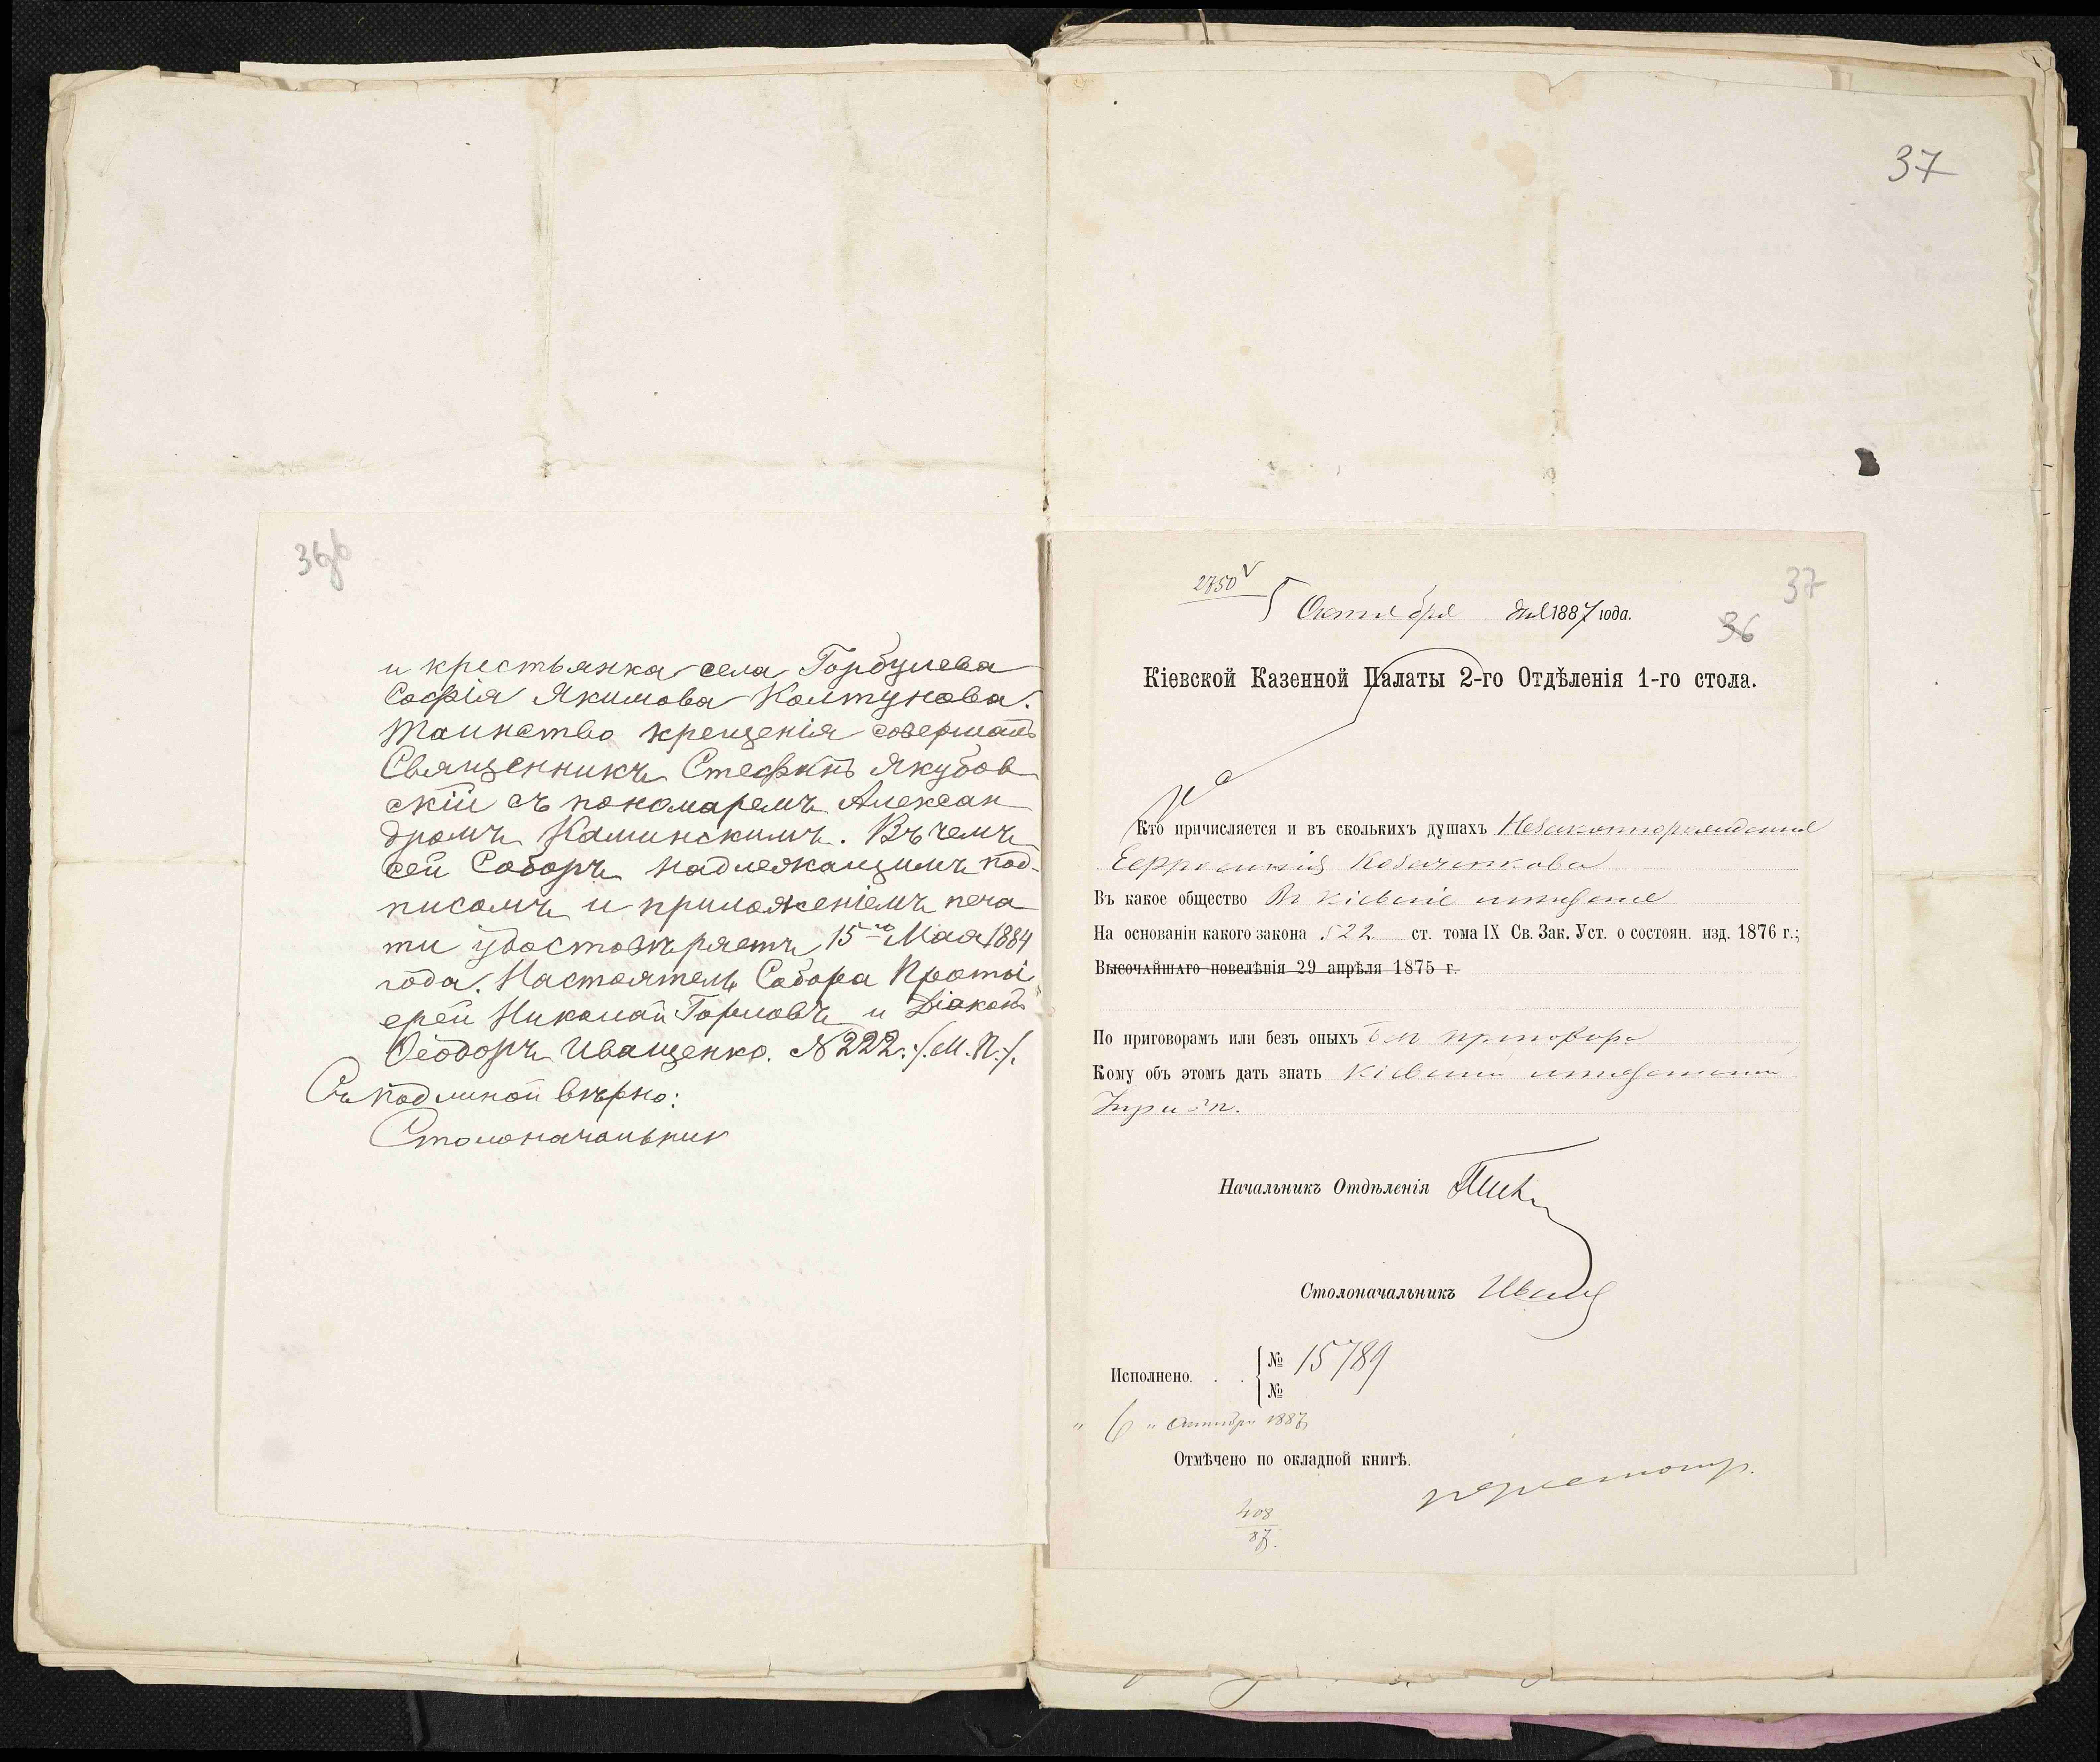 36об
и крестьянка села Горбулева
Софія Якимова Колтунова.
Таинство крещенія совершалъ
Священникъ Стефанъ Якубов
скій съ пономаремъ Алексан
дромъ Каминскимъ. Въ чемъ
сей Соборъ надлежащимъ под-
писомъ и приложеніемъ печа
ти удостовѣряетъ 15го Мая 1884
года. Настоятель Собора Протоі
ерей Николай и Діаконъ
Ѳеодоръ Иващенко. №222. /М.П./.
Съ подлиной вѣрно:
Столоначальник
37
37
36
2750
5 Октября дня 1887 года.
Кіевской Казенной Палаты 2-го Отдѣленія 1-го стола.
Кто причисляется и въ сколькихъ душахъ Незаконнорожденный
Въ какое общество Въ кіевскіе мѣщане
На основаніи какого закона 522 ст. тома IX Св. Зак. Уст. о состоян. изд. 1876 г.;
Высочайшаго повелѣнія 29 апрѣля 1875 г.
По приговорамъ или безъ оныхъ без приговора
Кому объ этомъ дать знать Кіевской мѣщанской
Начальникъ Отдѣленія
Столоначальникъ
Исполнено. . . № 15789
№
" 6 " Октября 1887
Отмѣчено по окладной книгѣ.
408
87.